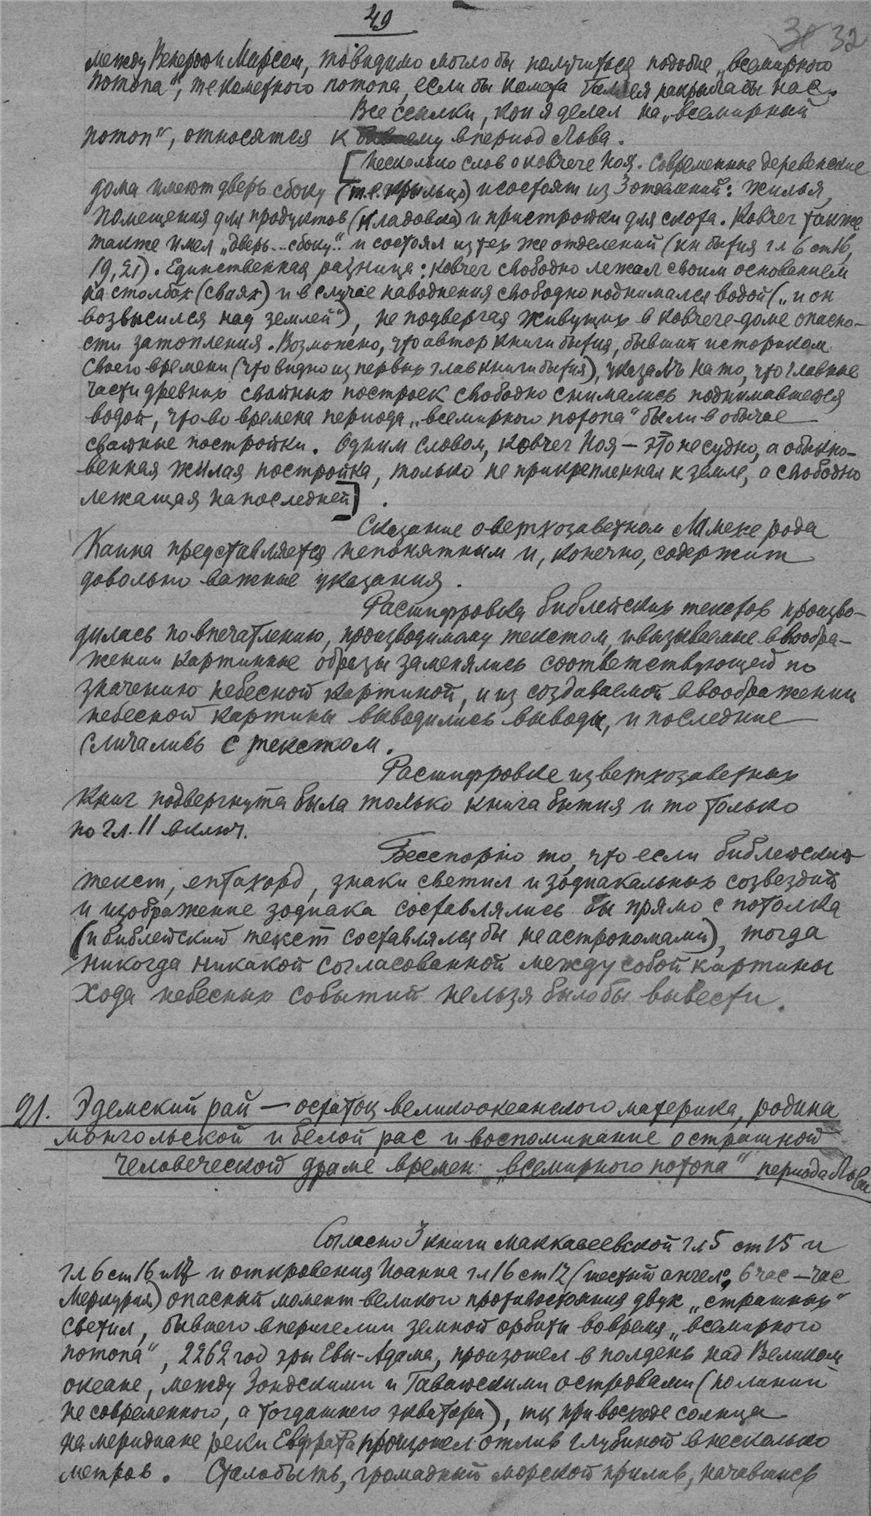 49
32
между Венерой и Марсом, то видимо могло бы получиться подобие „всемирного
потопа", т.е. кометного потопа, если бы комета накрыла бы нас.
Все ссылки, кои я делал на „всемирный
потоп", относятся к ему в период Льва.
[Несколько слов о ковчеге Ноя. Современные деревенские
дома имеют дверь сбоку (т.е. крыльцо) и состоят из 3 отделений: жилья,
помещения для продуктов (кладовка) и пристройки для скота. Ковчег также
также имел „дверь... сбоку" и состоял из тех же отделений (кн бытия гл 6 ст 16,
19, 21). Единственная разница: ковчег свободно лежал своим основанием
на столбах (сваях) и в случае наводнения свободно поднимался водой („и он
возвысился над землей"), не подвергая живущих в ковчеге-доме опасно-
сти затопления. Возможно, что автор книги бытия, бывший историком
своего времени (что видно из первых глав книги бытия), указалъ на то, что главные
части древних свайных построек свободно снимались поднимавшейся
водой, что во времена периода „всемирного потопа" были в обычае
свайные постройки. Одним словом, ковчег Ноя — это не судно, а обыкно-
венная жилая постройка, только не прикрепленная к земле, а свободно
лежащая на последней].
Сказание о ветхозаветном Ламехе рода
Каина представляется непонятным и, конечно, содержит
довольно важные указания.
Расшифровка библейских текстов произво-
дилась по впечатлению, производимому текстом, и вызываемые в вообра-
жении картинные образы заменялись соответствующей по
значению небесной картиной, и из создаваемой в воображении
небесной картины выводились выводы, и последние
сличались с текстом.
Расшифровке из ветхозаветных
книг подвергнута была только книга бытия и то только
по гл. 11 включ.
Бесспорно то, что если библейский
текст, ептахорд, знаки светил и зодиакальных созвездий
и изображение зодиака составлялись бы прямо с потолка
(и библейский текст составлялся бы не астрономами), тогда
никогда никакой согласованной между собой картины
хода небесных событий нельзя было бы вывести.
21. Эдемский рай — остаток великоокеанского материка, родина
монгольской и белой рас и воспоминание о страшной
человеческой драме времен „всемирного потопа" периода Льва
Согласно 3 книги маккавеевской гл 5 ст 15 и
гл 6 ст 16 и и откровения Иоанна гл 16 ст 12 (шестый ангел, 6 час — час
Меркурия) опасный момент великого противостояния двух „страшных"
светил, бывшего в перигелии земной орбиты во время „всемирного
потопа", 2262 год эры Евы-Адама, произошел в полдень над Великом
океане, между Зондскими и Гавайскими островами (по линии
не современного, а тогдашнего экватора), т.к. при восходе солнца
на меридиане реки Евфрата произошел отлив глубиной в несколько
метров. Стало быть, громадный морской прилив, начавшись